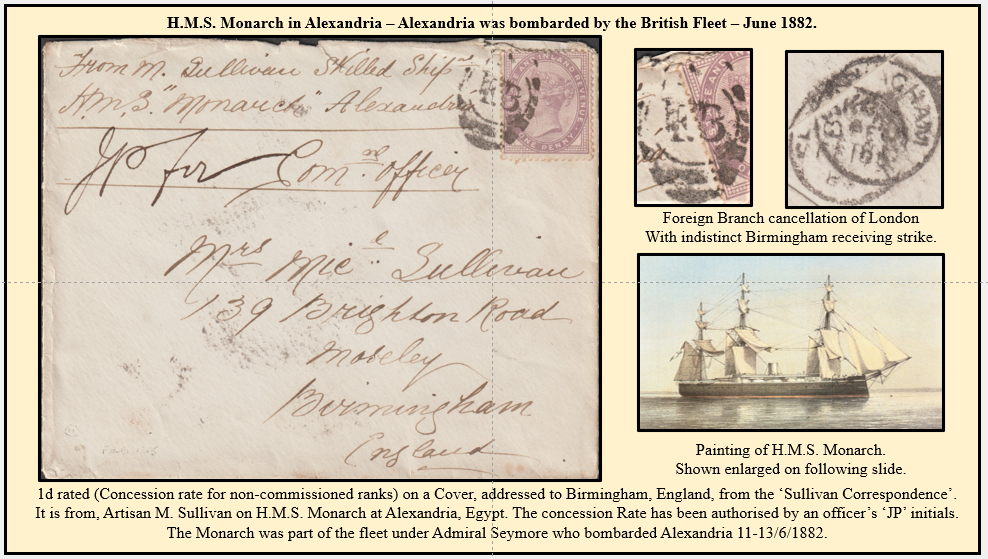 H.M.S. Monarch in Alexandria – Alexandria was bombarded by the British Fleet – June 1882.
From M. Sullivan Skilled Ship
H.M.S. "Monarch" Alexandria
JP for Comng officer
Mrs Micl Sullivan
139 Brighton Road
Moseley
Birmingham
England
Foreign Branch cancellation of London
With indistinct Birmingham receiving strike.
Painting of H.M.S. Monarch.
Shown enlarged on following slide.
1d rated (Concession rate for non-commissioned ranks) on a Cover, addressed to Birmingham, England, from the ‘Sullivan Correspondence’.
It is from, Artisan M. Sullivan on H.M.S. Monarch at Alexandria, Egypt. The concession Rate has been authorised by an officer’s ‘JP’ initials.
The Monarch was part of the fleet under Admiral Seymore who bombarded Alexandria 11-13/6/1882.